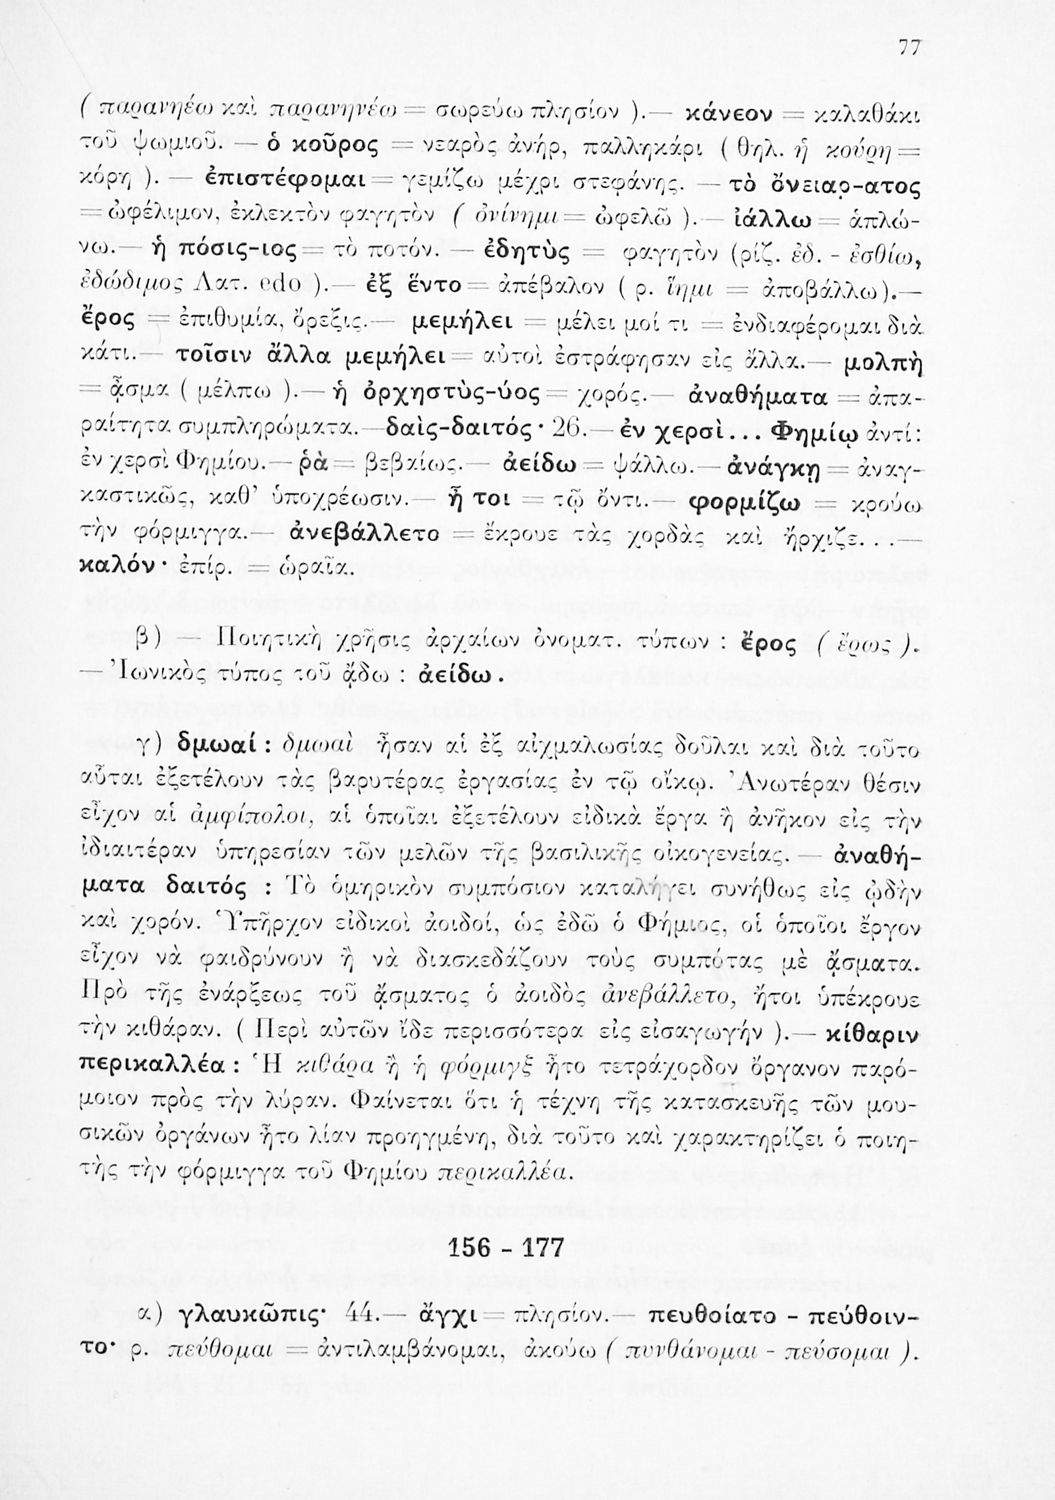 77
( παρανηέω καὶ παρανηνέω = σωρεύω πλησίον ).— κάνεον = καλαθάκι
τοῦ ψωμιοῦ. — ὁ κοῦρος = νεαρὸς ἀνήρ, παλληκάρι ( θηλ. ἡ κούρη =
κόρη ). — ἐπιστέφομαι = γεμίζω μέχρι στεφάνης. — τὸ ὄνειαρ-ατος
= ὠφέλιμον, ἐκλεκτὸν φαγητὸν ( ὀνίνημι = ὠφελῶ ). — ἰάλλω = ἁπλώ-
νω.— ἡ πόσις-ιος = τὸ ποτόν. — ἐδητὺς = φαγητὸν (ρίζ. ἐδ. - ἐσθίω,
ἐδώδιμος Λατ. edo ).— ἐξ ἕντο = ἀπέβαλον ( ρ. ἵημι = ἀποβάλλω).—
ἔρος = ἐπιθυμία, ὄρεξις.— μεμήλει = μέλει μοί τι = ἐνδιαφέρομαι διὰ
κάτι.— τοῖσιν ἄλλα μεμήλει = αὐτοὶ ἐστράφησαν εἰς ἄλλα.— μολπὴ
= ᾆσμα ( μέλπω ).— ἡ ὀρχηστὺς-ύος = χορός.— ἀναθήματα = ἀπα-
ραίτητα συμπληρώματα.—δαὶς-δαιτός · 26.— ἐν χερσὶ... Φημίῳ ἀντί:
ἐν χερσὶ Φημίου.— ῥὰ = βεβαίως.— ἀείδω = ψάλλω.— ἀνάγκῃ = ἀναγ-
καστικῶς, καθ’ ὑποχρέωσιν.— ἦ τοι = τῷ ὄντι.— φορμίζω = κρούω
τὴν φόρμιγγα.— ἀνεβάλλετο = ἔκρουε τὰς χορδὰς καὶ ἤρχιζε. . .—
καλόν · ἐπίρ. = ὡραῖα.
β) — Ποιητικὴ χρῆσις ἀρχαίων ὀνοματ. τύπων : ἔρος ( ἔρως ).
— Ἰωνικὸς τύπος τοῦ ᾄδω : ἀείδω .
γ) δμωαί : δμωαὶ ἦσαν αἱ ἐξ αἰχμαλωσίας δοῦλαι καὶ διὰ τοῦτο
αὗται ἐξετέλουν τὰς βαρυτέρας ἐργασίας ἐν τῷ οἴκῳ. Ἀνωτέραν θέσιν
εἶχον αἱ ἀμφίπολοι, αἱ ὁποῖαι ἐξετέλουν εἰδικὰ ἔργα ἢ ἀνῆκον εἰς τὴν
ἰδιαιτέραν ὑπηρεσίαν τῶν μελῶν τῆς βασιλικῆς οἰκογενείας. — ἀναθή-
ματα δαιτός : Τὸ ὁμηρικὸν συμπόσιον καταλήγει συνήθως εἰς ᾠδὴν
καὶ χορόν. Ὑπῆρχον εἰδικοὶ ἀοιδοί, ὡς ἐδῶ ὁ Φήμιος, οἱ ὁποῖοι ἔργον
εἶχον νὰ φαιδρύνουν ἢ νὰ διασκεδάζουν τοὺς συμπότας μὲ ᾄσματα.
Πρὸ τῆς ἐνάρξεως τοῦ ᾄσματος ὁ ἀοιδὸς ἀνεβάλλετο, ἤτοι ὑπέκρουε
τὴν κιθάραν. ( Περὶ αὐτῶν ἴδε περισσότερα εἰς εἰσαγωγήν ).— κίθαριν
περικαλλέα : Ἡ κιθάρα ἢ ἡ φόρμιγξ ἦτο τετράχορδον ὄργανον παρό-
μοιον πρὸς τὴν λύραν. Φαίνεται ὅτι ἡ τέχνη τῆς κατασκευῆς τῶν μου-
σικῶν ὀργάνων ἦτο λίαν προηγμένη, διὰ τοῦτο καὶ χαρακτηρίζει ὁ ποιη-
τὴς τὴν φόρμιγγα τοῦ Φημίου περικαλλέα.
156 - 177
α) γλαυκῶπις· 44.— ἄγχι = πλησίον.— πευθοίατο - πεύθοιν-
το· ρ. πεύθομαι = ἀντιλαμβάνομαι, ἀκούω ( πυνθάνομαι - πεύσομαι ).